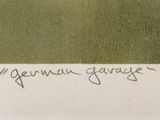 "german garage"